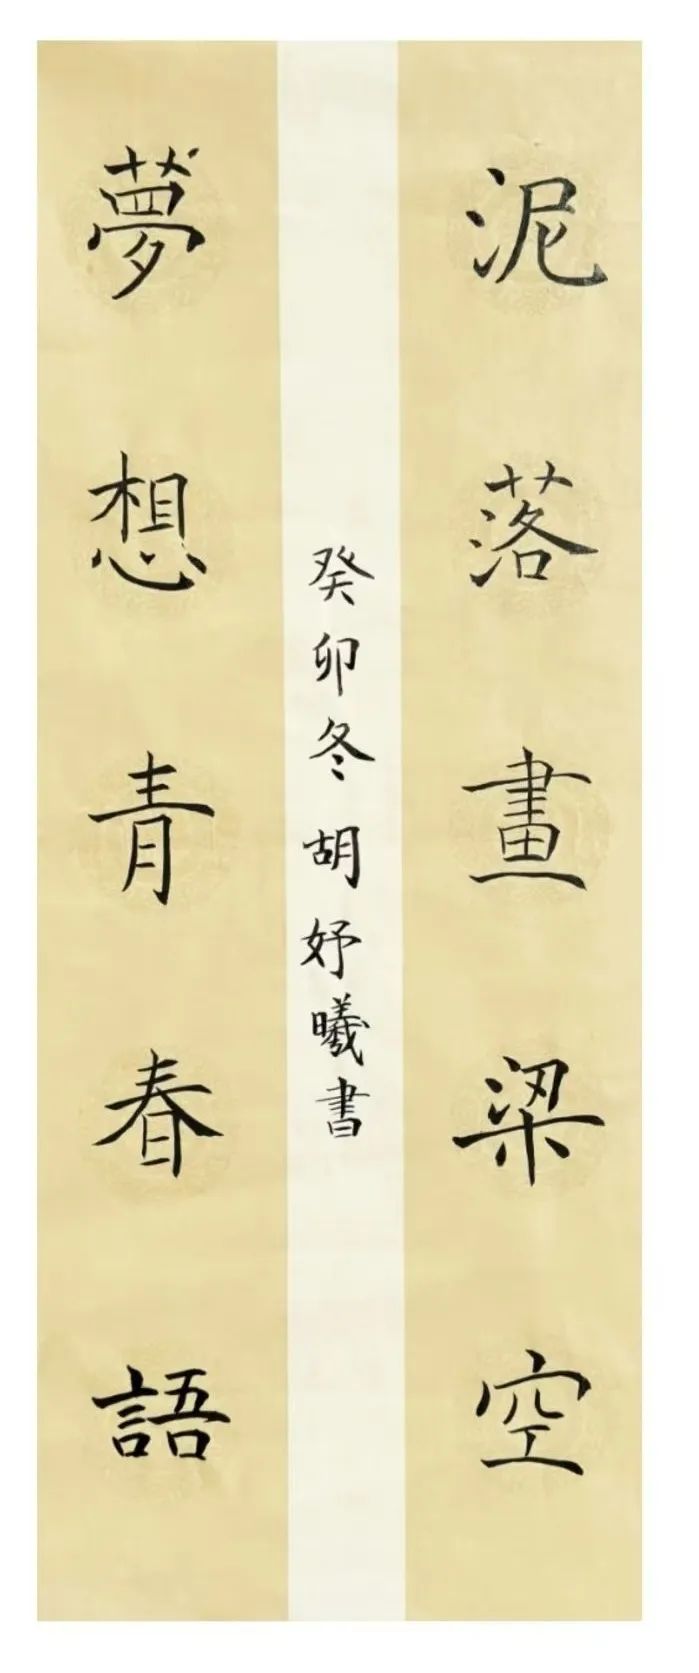 泥落畫梁空
夢想青春語
癸卯冬胡妤曦書